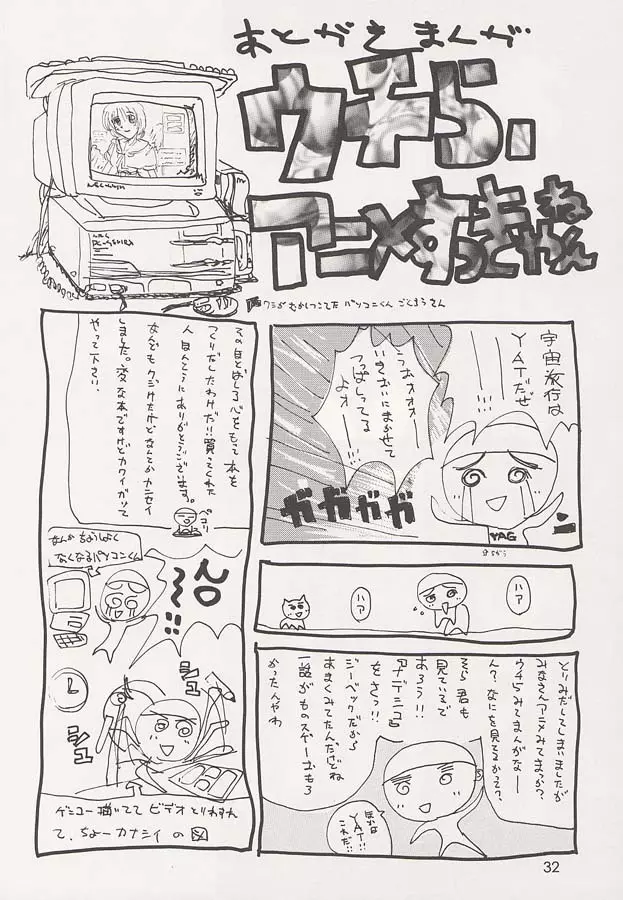 あとがきまんが
ウチら、
アニメすっきゃねん
ワシがむかしつこてた パソコンくん ごくろうさん
宇宙旅行は
YATだぜ
うおォォォー
いきおいにまかせて
つっぱしってる
よォー
ガガガガガ
YAG
ハア
ハア
とりみだしてしまいましたが
みなさんアニメみてまっか?
ウチらみてまんがなー
ん?なにを見てるかって?
そら君も
見ているで
あろう!!
ナデシコ
をさっ!!
ジーベックだから
あまくみてたんだけどね
一話がものスゲーおもろ
かったんやわ
ほかは
YAT!!
これだ!!
そのほとばしる心をもって本を
つくりだしたわけだ!!買ってくれた
人ほんとうにありがとうございます。
なんどもクジけたけどなんとかカンセイ
しました。変な本ですけどカワイがって
やって下さい。
ペコリ
なんかちょうしよく
なくなるパソコンくん
シュ
シュ
ゲンコー描いてて ビデオとりわすれ
て、ちょーカナシイ の図
32